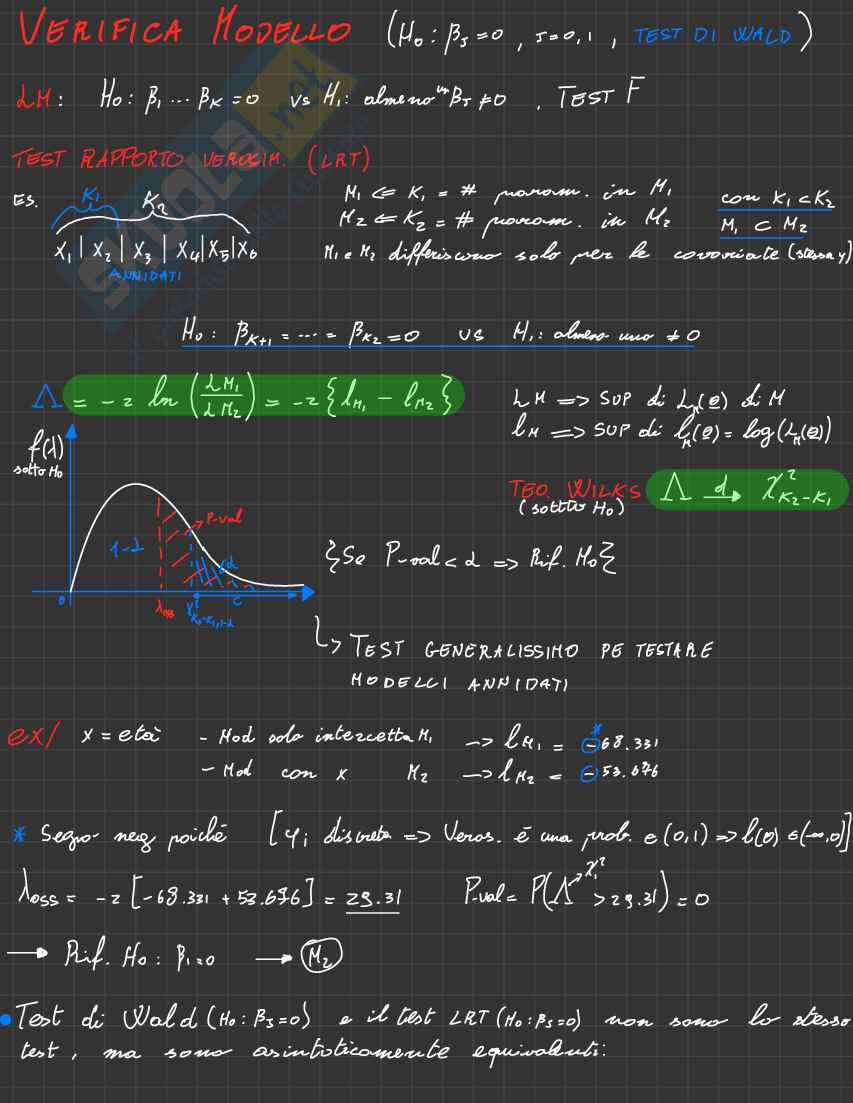 VERIFICA MODELLO (H₀: βⱼ=0, J=0,1, TEST DI WALD)
LM: H₀: β₁ ... βₖ=0 vs H₁: almeno un βⱼ≠0, TEST F
TEST RAPPORTO VEROSIM. (LRT)
ES.
K₁ K₂
X₁ | X₂ | X₃ | X₄ | X₅ | X₆
ANNIDATI
M₁ ⇐ K₁ = # param. in M₁
M₂ ⇐ K₂ = # param. in M₂
con K₁ < K₂
M₁ ⊂ M₂
M₁ e M₂ differiscono solo per le covariate (stessa y)
H₀: βₖ₊₁ = ... = βₖ₂ = 0 vs H₁: almeno uno ≠ 0
Λ = -2 ln (LM₁/LM₂) = -2{lM₁ - lM₂}
LM => SUP di Lₘ(θ) di M
lM => SUP di lₘ(θ) = log(Lₘ(θ))
TEO. WILKS Λ →d χ²K₂-K₁
(sotto H₀)
f(λ)
sotto H₀
P-val
1-α
α
0
λoss
χ²K₂-K₁,1-α
C
{Se P-val < α => Rif. H₀}
↳ TEST GENERALISSIMO PE TESTARE
MODELLI ANNIDATI
ex/ x = età - Mod solo intercetta M₁ -> lM₁ = -68.331
*
- Mod con x M₂ -> lM₂ = -53.676
* Segno neg poichè [Yᵢ discreta => Veros. é una prob. ∈(0,1) => l(θ) ∈(-∞,0]]
λoss = -2[-68.331 + 53.676] = 29.31 P-val = P(Λ > 29.31) = 0
χ²₁
→ Rif. H₀: β₁=0 → M₂
• Test di Wald (H₀: βⱼ=0) e il test LRT (H₀: βⱼ=0) non sono lo stesso
test, ma sono asintoticamente equivalenti:
SKUOLA.net